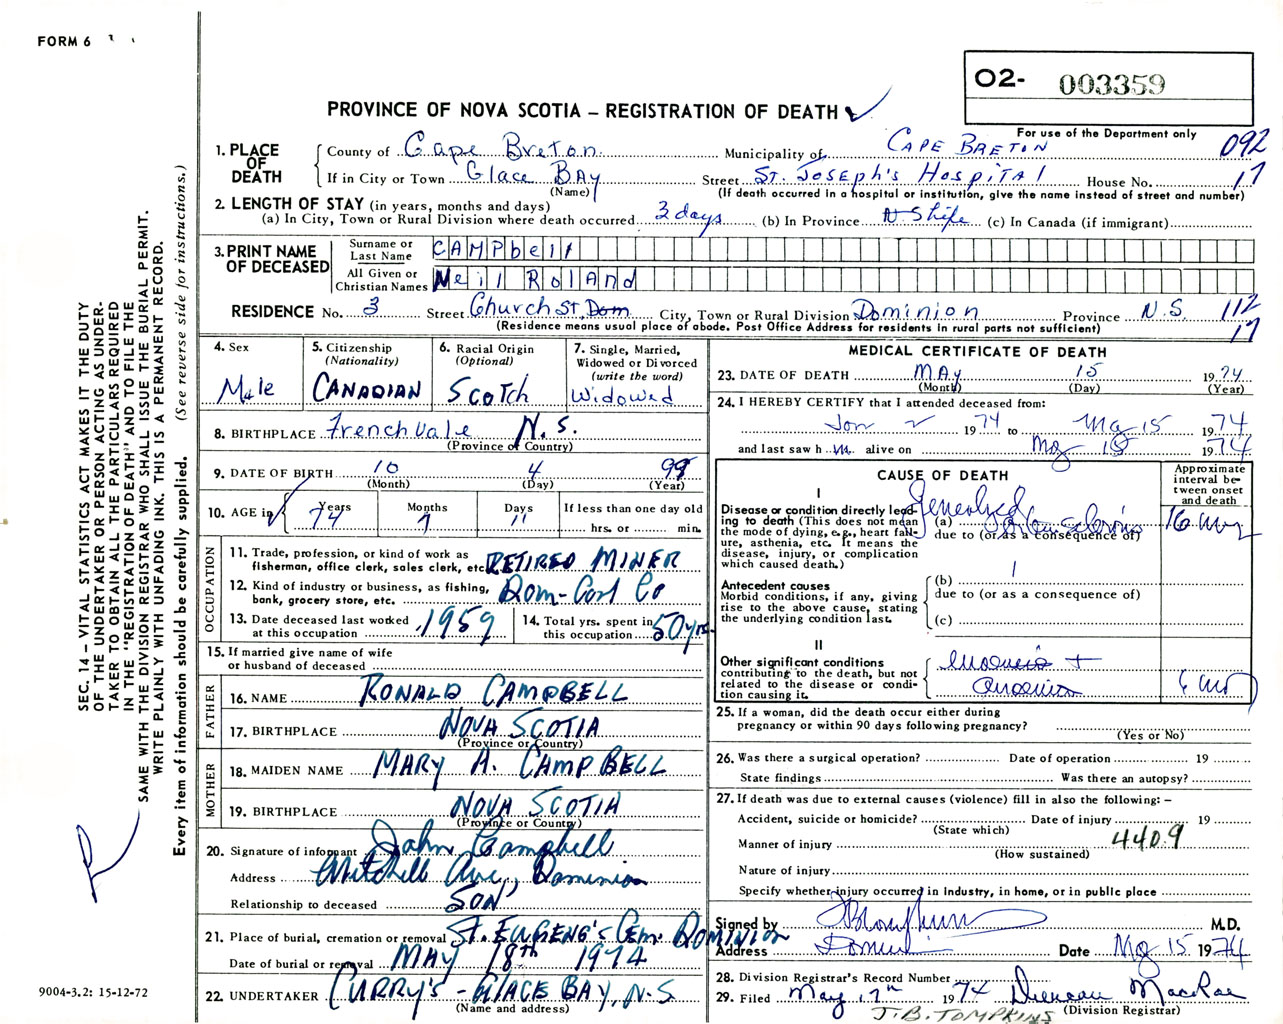 FORM 6
O2- 003359
PROVINCE OF NOVA SCOTIA – REGISTRATION OF DEATH
For use of the Department only
092
17
1. PLACE OF DEATH
County of Cape Breton Municipality of CAPE BRETON
If in City or Town Glace BAY Street ST. Joseph's HospitAl House No.
(Name) (If death occurred in a hospital or institution, give the name instead of street and number)
2. LENGTH OF STAY (in years, months and days)
(a) In City, Town or Rural Division where death occurred 3 days (b) In Province N.S life (c) In Canada (if immigrant)
3. PRINT NAME OF DECEASED
Surname or Last Name CAMPbell
All Given or Christian Names Neil ROlANd
RESIDENCE No. 3 Street Church St, Dom City, Town or Rural Division Dominion Province N.S. 112
17
(Residence means usual place of abode. Post Office Address for residents in rural parts not sufficient)
4. Sex
Male
5. Citizenship
(Nationality)
CANADIAN
6. Racial Origin
(Optional)
Scotch
7. Single, Married,
Widowed or Divorced
(write the word)
Widowed
8. BIRTHPLACE Frenchvale N.S.
(Province or Country)
9. DATE OF BIRTH 10 4 99
(Month) (Day) (Year)
10. AGE in Years Months Days If less than one day old
74 7 11 hrs. or min.
OCCUPATION
11. Trade, profession, or kind of work as
fisherman, office clerk, sales clerk, etc. RETIRED MINER
12. Kind of industry or business, as fishing,
bank, grocery store, etc. Dom-Coal Co
13. Date deceased last worked
at this occupation 1959
14. Total yrs. spent in
this occupation 50 yrs.
15. If married give name of wife
or husband of deceased
FATHER
16. NAME RONALD CAMPBELL
17. BIRTHPLACE NOVA SCOTIA
(Province or Country)
MOTHER
18. MAIDEN NAME MARY A. CAMPBELL
19. BIRTHPLACE NOVA SCOTIA
(Province or Country)
20. Signature of informant John Campbell
Address Mitchell Ave., Dominion
Relationship to deceased SON
21. Place of burial, cremation or removal ST. EUGENG'S Cem. DOMINION
Date of burial or removal MAY 18th 1974
22. UNDERTAKER CURRY'S - GLACE BAY, N.S.
(Name and address)
MEDICAL CERTIFICATE OF DEATH
23. DATE OF DEATH MAY 15 1974
(Month) (Day) (Year)
24. I HEREBY CERTIFY that I attended deceased from:
Jan 1974 to May 15 1974
and last saw h im alive on May 15 1974
CAUSE OF DEATH
Approximate
interval be-
tween onset
and death
I
Disease or condition directly lead-
ing to death (This does not mean
the mode of dying, e.g., heart fail-
ure, asthenia, etc. It means the
disease, injury, or complication
which caused death.)
(a)
due to (or as a consequence of)
Antecedent causes
Morbid conditions, if any, giving
rise to the above cause, stating
the underlying condition last.
(b)
due to (or as a consequence of)
(c)
II
Other significant conditions
contributing to the death, but not
related to the disease or condi-
tion causing it.
25. If a woman, did the death occur either during
pregnancy or within 90 days following pregnancy?
(Yes or No)
26. Was there a surgical operation? Date of operation 19
State findings Was there an autopsy?
27. If death was due to external causes (violence) fill in also the following: –
Accident, suicide or homicide? Date of injury 19
(State which)
Manner of injury 4409
(How sustained)
Nature of injury
Specify whether injury occurred in Industry, in home, or in public place
Signed by M.D.
Address Date May 15 1974
28. Division Registrar's Record Number
29. Filed May 17th 1974 Duncan MacRae
(Division Registrar)
J.B. TOMPKINS
SEC. 14 – VITAL STATISTICS ACT MAKES IT THE DUTY
OF THE UNDERTAKER OR PERSON ACTING AS UNDER-
TAKER TO OBTAIN ALL THE PARTICULARS REQUIRED
IN THE "REGISTRATION OF DEATH" AND TO FILE THE
SAME WITH THE DIVISION REGISTRAR WHO SHALL ISSUE THE BURIAL PERMIT.
WRITE PLAINLY WITH UNFADING INK. THIS IS A PERMANENT RECORD.
Every item of information should be carefully supplied. (See reverse side for instructions.)
9004-3.2: 15-12-72